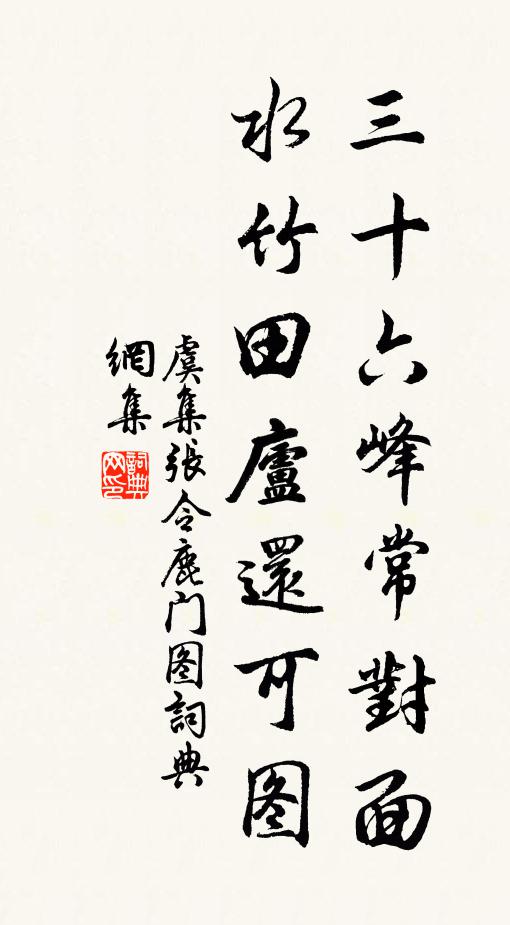 三十六峰常對面
水竹田廬還可图
虞集张令鹿门图詞典
網集
詞典网印